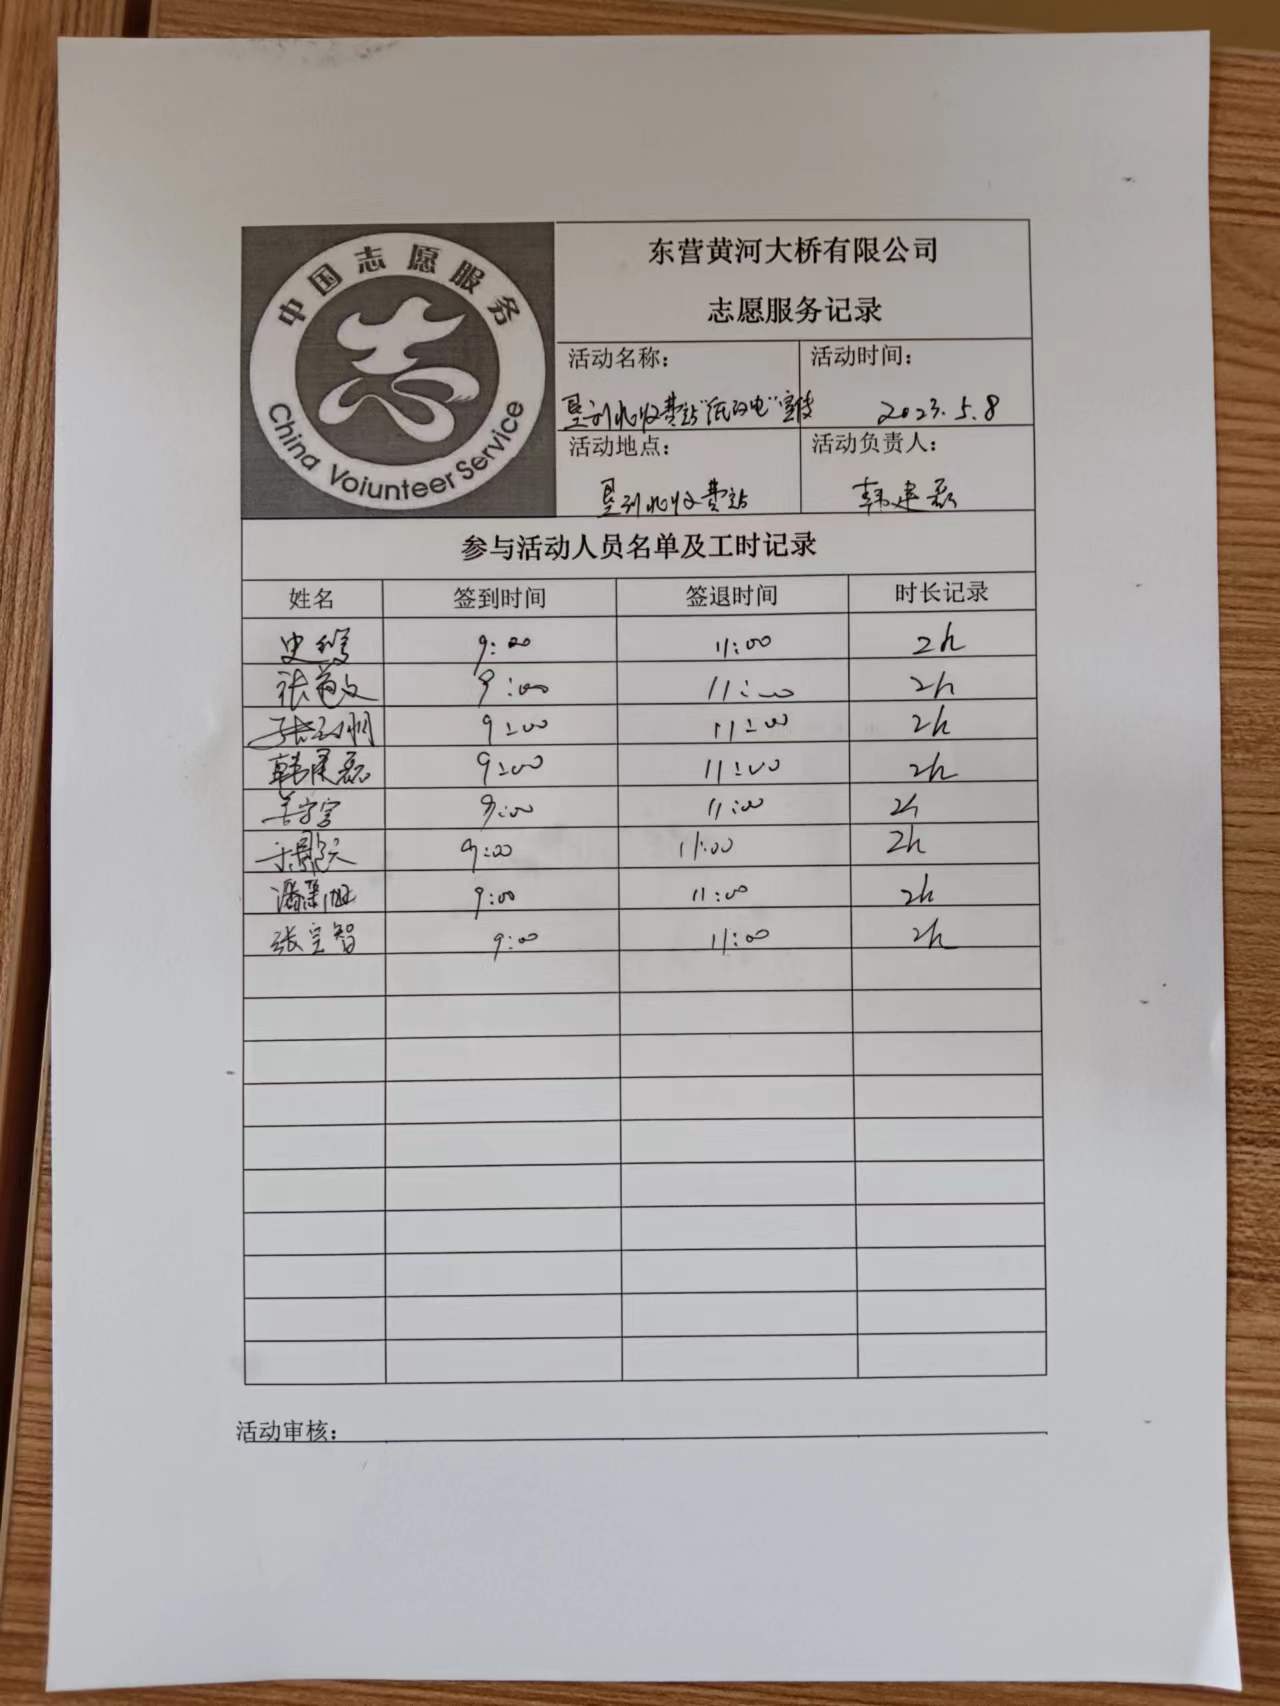 中国志愿服务
China Voiunteer Service
东营黄河大桥有限公司
志愿服务记录
活动名称： 活动时间：
垦利北收费站"低  电"宣传 2023.5.8
活动地点： 活动负责人：
垦利北收费站 韩建磊
参与活动人员名单及工时记录
姓名 签到时间 签退时间 时长记录
史 9:00 11:00 2h
张 9:00 11:00 2h
张 明 9:00 11:00 2h
韩建磊 9:00 11:00 2h
9:00 11:00 2h
于 9:00 11:00 2h
潘 旭 9:00 11:00 2h
张 智 9:00 11:00 2h
活动审核：